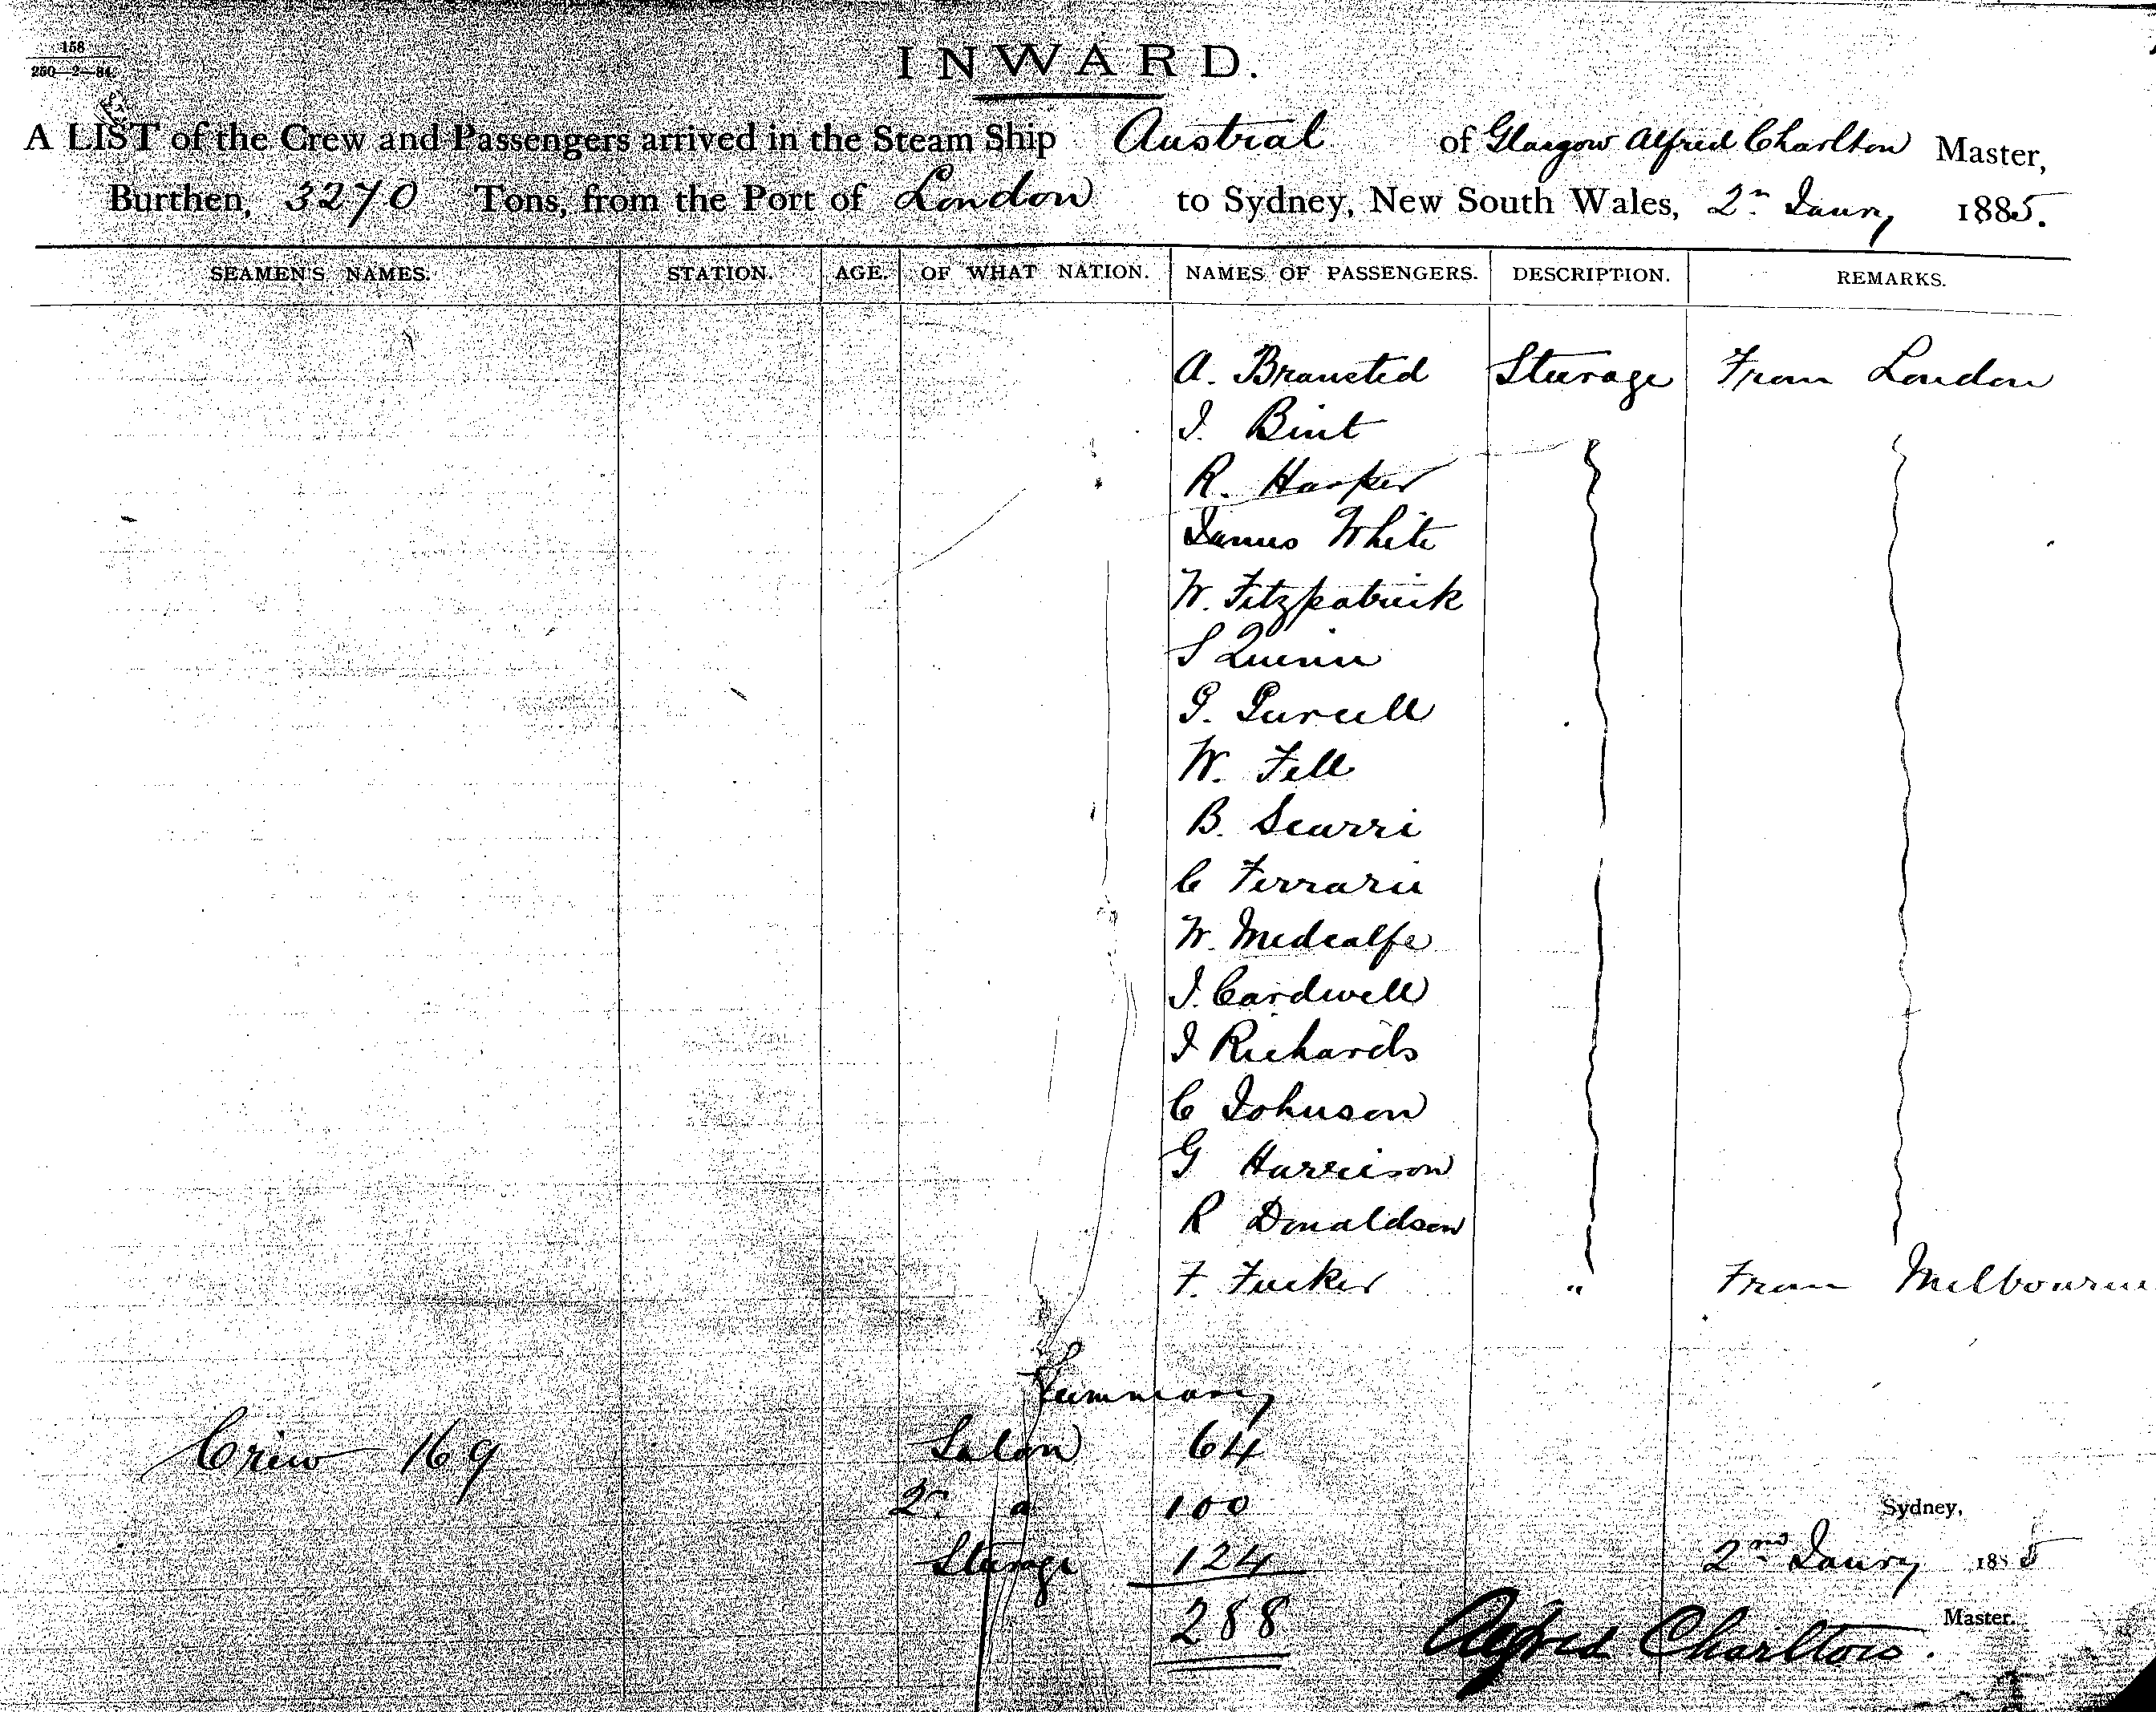 158
250—2—84.
INWARD.
A LIST of the Crew and Passengers arrived in the Steam Ship Austral of Glasgow Alfred Charlton Master,
Burthen, 3270 Tons, from the Port of London to Sydney, New South Wales, 2n Janry 1885.
SEAMEN'S NAMES. STATION. AGE. OF WHAT NATION. NAMES OF PASSENGERS. DESCRIPTION. REMARKS.
A. Bransted Steerage From London
J. Bint
R. Harper
James White
W. Fitzpatrick
S Quinn
G. Purcell
W. Fell
B. Scurri
C Ferrarii
W. Medcalfe
J. Cardwell
J Richards
C Johnson
G Harrison
R Donaldson
F. Tucker " From Melbourne
Summary
Crew 169 Saloon 64
2n 100
Steerage 124
288
Sydney,
2nd Janry 1885
Alfred Charlton. Master.